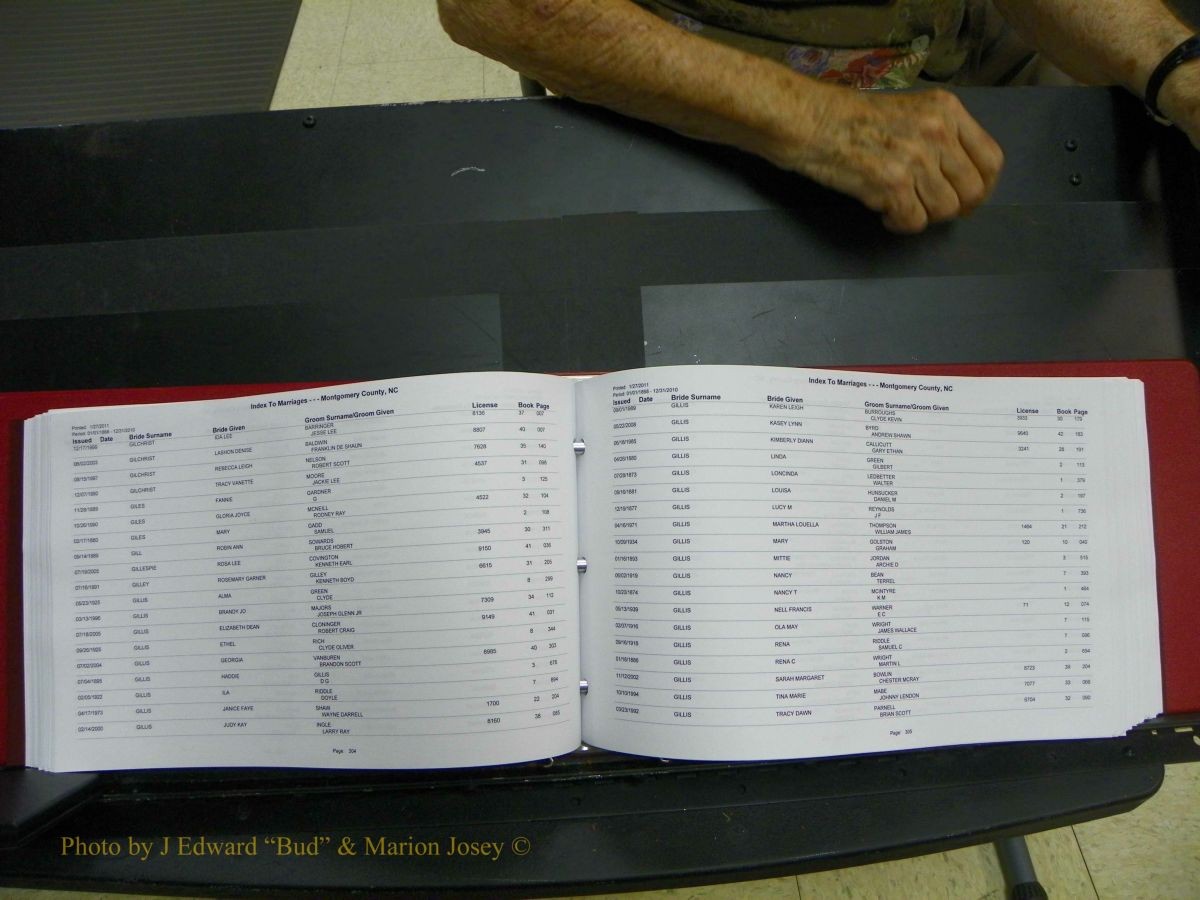 Index To Marriages - - - Montgomery County, NC
Printed 1/27/2011
Period: 01/01/1868 - 12/31/2010
Issued Date Bride Surname Bride Given Groom Surname/Groom Given License Book Page
12/17/1966 GILCHRIST IDA LEE BARRINGER 6136 37 007
JESSE LEE
08/02/2003 GILCHRIST LASHON DENISE BALDWIN 8807 40 007
FRANKLIN DE SHAUN
GILCHRIST REBECCA LEIGH NELSON 7628 35 140
ROBERT SCOTT
12/07/1990 GILCHRIST TRACY VANETTE MOORE 4537 31 098
JACKIE LEE
11/28/1889 GILES FANNIE GARDNER 3 125
G
10/26/1990 GILES GLORIA JOYCE MCNEILL 4522 32 104
RODNEY RAY
02/17/1880 GILES MARY GADD 2 108
SAMUEL
09/14/1989 GILL ROBIN ANN SOWARDS 3945 30 311
BRUCE HOBERT
GILLESPIE ROSA LEE COVINGTON 9150 41 036
KENNETH EARL
07/16/1991 GILLEY ROSEMARY GARNER GILLEY 6615 31 205
KENNETH BOYD
05/23/1925 GILLIS ALMA GREEN 8 299
CLYDE
03/13/1996 GILLIS BRANDY JO MAJORS 7309 34 112
JOSEPH GLENN JR
07/18/2005 GILLIS ELIZABETH DEAN CLONINGER 9149 41 031
ROBERT CRAIG
09/26/1925 GILLIS ETHEL RICH 8 344
CLYDE OLIVER
07/02/2004 GILLIS GEORGIA VANBUREN 8985 40 303
BRANDON SCOTT
07/04/1895 GILLIS HADDIE GILLIS 3 675
D G
02/05/1922 GILLIS ILA RIDDLE 7 894
DOYLE
04/17/1973 GILLIS JANICE FAYE SHAW 1700 22 204
WAYNE DARRELL
02/14/2000 GILLIS JUDY KAY INGLE 8160 38 085
LARRY RAY
Page: 304
Index To Marriages - - - Montgomery County, NC
Printed 1/27/2011
Period: 01/01/1868 - 12/31/2010
Issued Date Bride Surname Bride Given Groom Surname/Groom Given License Book Page
09/01/1989 GILLIS KAREN LEIGH BURROUGHS 3933 30 179
CLYDE KEVIN
05/22/2008 GILLIS KASEY LYNN BYRD 9640 42 183
ANDREW SHAWN
GILLIS KIMBERLY DIANN CALLICUTT 3241 28 191
GARY ETHAN
04/26/1880 GILLIS LINDA GREEN 2 113
GILBERT
07/28/1873 GILLIS LONCINDA LEDBETTER 1 379
WALTER
09/16/1881 GILLIS LOUISA HUNSUCKER 2 197
DANIEL M
12/19/1877 GILLIS LUCY M REYNOLDS 1 736
J F
04/16/1971 GILLIS MARTHA LOUELLA THOMPSON 1464 21 212
WILLIAM JAMES
10/09/1934 GILLIS MARY GOLSTON 120 10 040
GRAHAM
01/16/1893 GILLIS MITTIE JORDAN 3 515
ARCHIE D
09/02/1919 GILLIS NANCY BEAN 7 393
TERREL
10/23/1874 GILLIS NANCY T MCINTYRE 1 464
K M
05/13/1939 GILLIS NELL FRANCIS WARNER 71 12 074
E C
02/27/1916 GILLIS OLA MAY WRIGHT 7 115
JAMES WALLACE
09/16/1915 GILLIS RENA RIDDLE 7 096
SAMUEL C
01/16/1886 GILLIS RENA C WRIGHT 2 654
MARTIN L
11/12/2002 GILLIS SARAH MARGARET BOWLIN 8723 39 204
CHESTER MCRAY
10/10/1994 GILLIS TINA MARIE MABE 7077 33 068
JOHNNY LENDON
03/23/1992 GILLIS TRACY DAWN PARNELL 6704 32 090
BRIAN SCOTT
Page: 305
Photo by J Edward “Bud” & Marion Josey ©